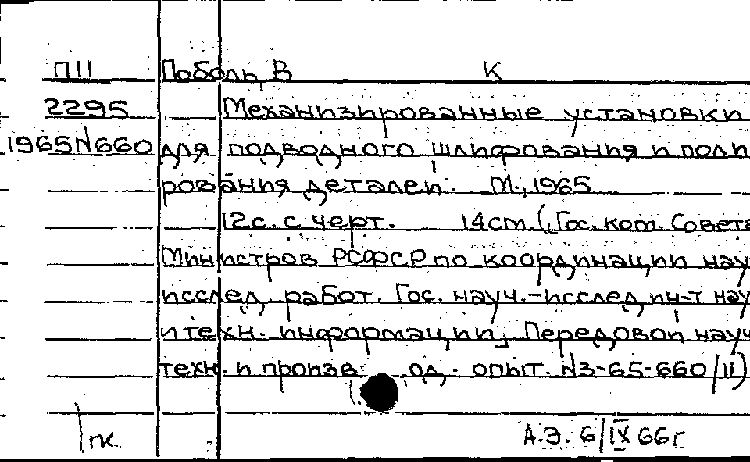 П11 Поболь, В К
2295 Механизированные установки
1965N660 для подводного шлифования и поли
рования деталей. М., 1965
12 с. с черт. 14 см. (Гос. ком. Совета
Министров РСФСР по координации науч
исслед. работ. Гос. науч.-исслед. ин-т науч
и техн. информации. Передовой науч
техн. и произв од. опыт. N3-65-660/11)
пк А.Э. 6/IX 66 г